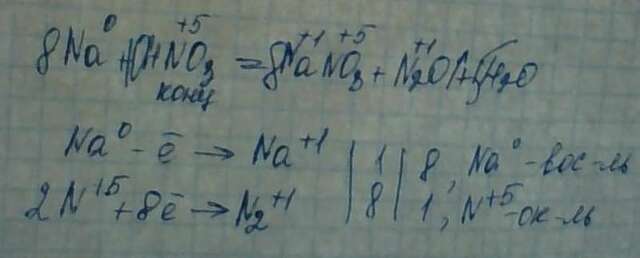 8Na⁰ + 10HN⁺⁵O₃ = 8Na⁺¹N⁺⁵O₃ + N₂⁺¹O + 5H₂O
конц
Na⁰ - ē → Na⁺¹ | 1 | 8, Na⁰ - вос-ль
2N⁺⁵ + 8ē → N₂⁺¹ | 8 | 1, N⁺⁵ - ок-ль